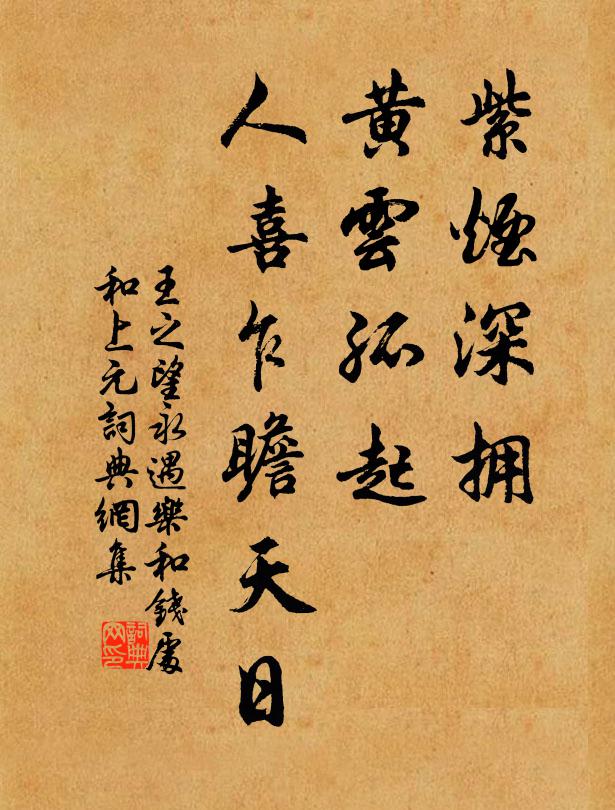 紫煙深拥
黄雲孤起
人喜乍瞻天日
王之望永遇樂和錢處
和上元詞典網集
詞典网印